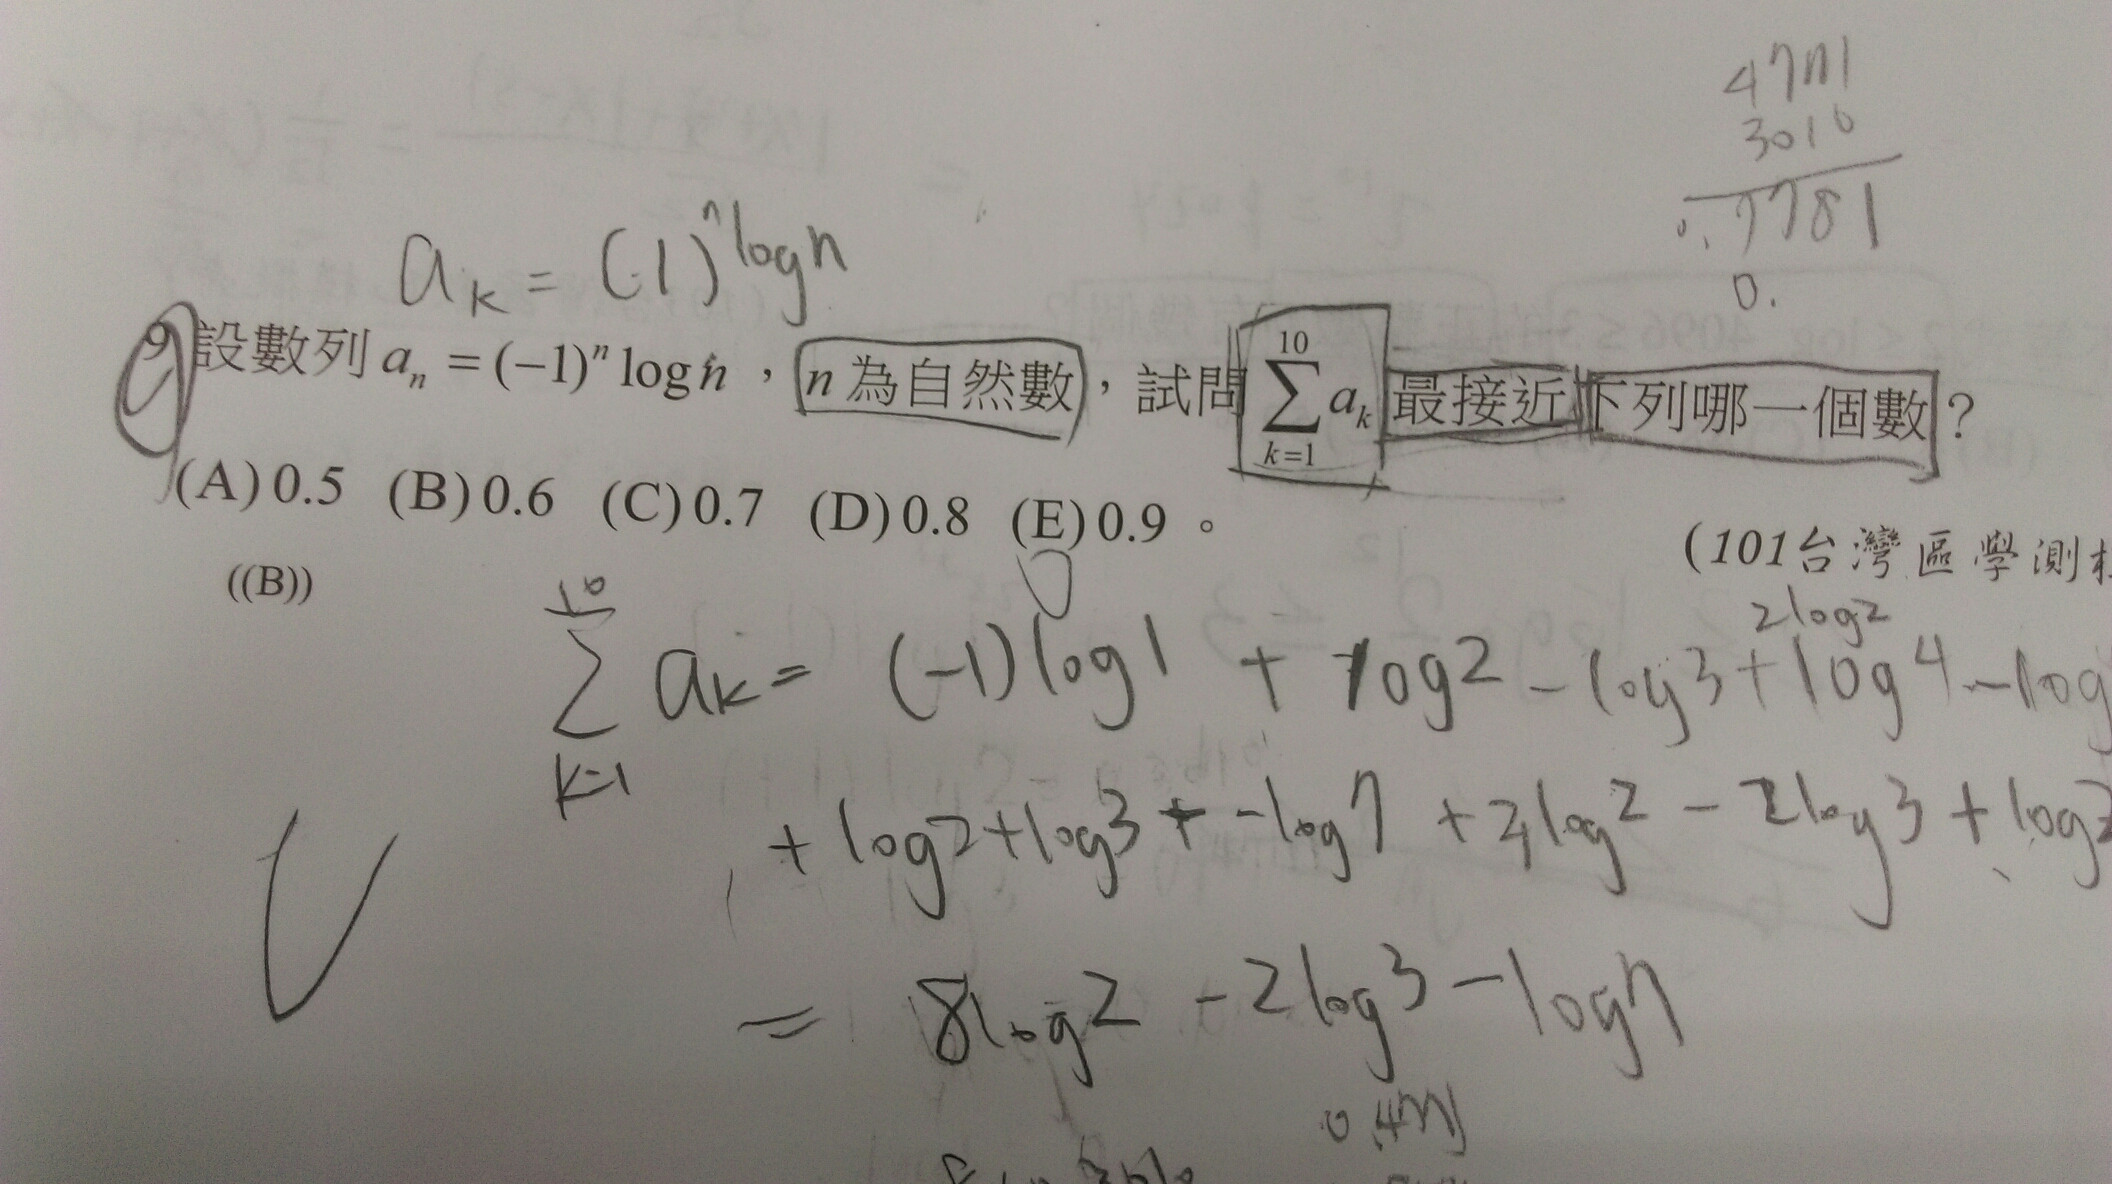 4771
3010
0.7781
0.
a_k = (-1)^n log n
9 設數列 a_n = (-1)^n log n，n為自然數，試問 \sum_{k=1}^{10} a_k 最接近下列哪一個數？
(A) 0.5 (B) 0.6 (C) 0.7 (D) 0.8 (E) 0.9。
(101台灣區學測
((B))
0
2log2
\sum_{k=1}^{10} a_k = (-1)log1 + log2 - log3 + log4 - log
+ log2 + log3 + -log7 + 3log2 - 2log3 + log2
= 8log2 - 2log3 - log7
0.4771